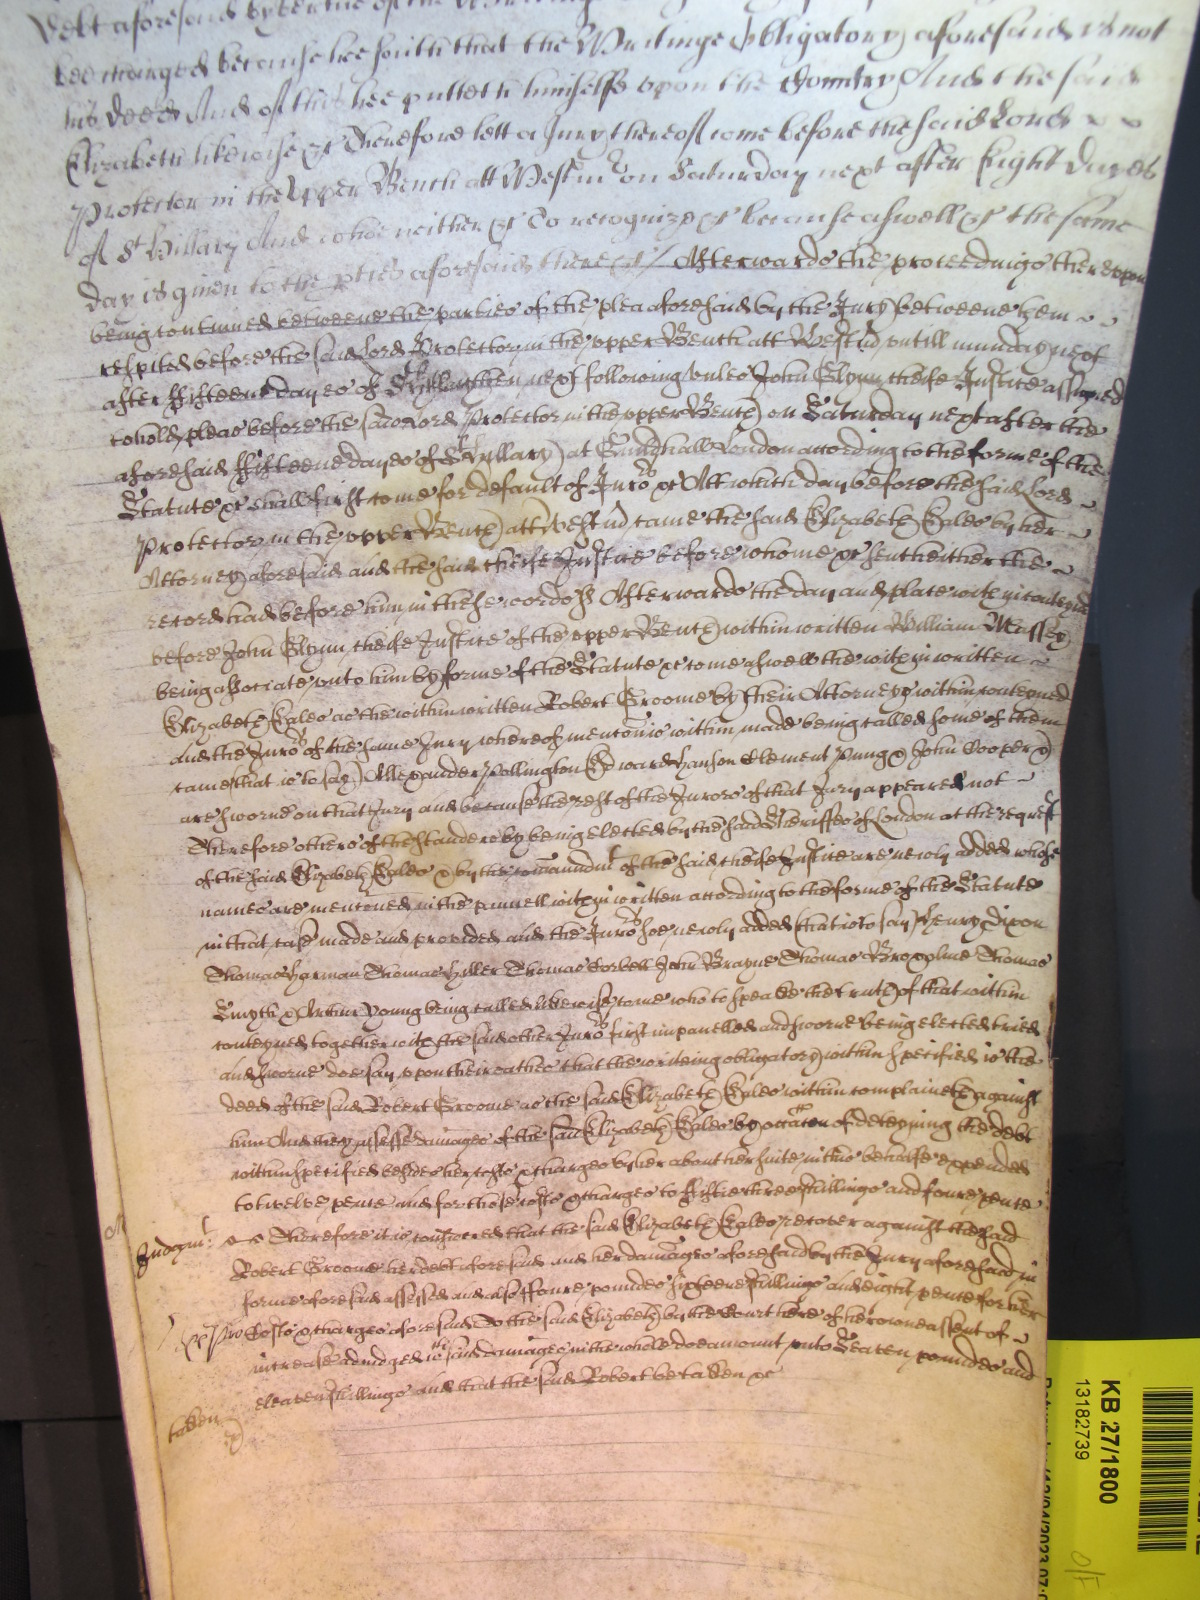 debt aforesaid by vertue of the Writinge
bee charged because hee saith that the Writinge obligatory aforesaid is not
his deed And of this hee putteth himselfe upon the Country And the said
Elizabeth likewise &c Therefore lett a Jury thereof come before the said Lord
Protector in the Upper Bench att Westmr on Saturday next after Eight dayes
of St Hillary And who neither &c To recognize &c because aswell &c the same
day is given to the pties aforesaid there &c / Afterwards the proceedings thereupon
being continued betweene the parties of the plea aforesaid by the Jury betweene them
respited before the said Lord Protector in the upper Bench att Westmr untill munday next
after fifteene dayes of then next following unles John Glynn cheife Justice assigned
to hold pleas before the said Lord Protector in the upper Bench on Saturday next after the
aforesaid fifteene dayes of St Hyllary at Guildhall London according to the forme of the
Statute &c shall first come for default of Juros &c Att which day before the said Lord
Protector in the upper Bench att Westmr came the said Elizabeth Eales by her
Attorney aforesaid and the said cheife Justice before whome &c sent hither the
record had before him in these words ss Afterwards the day and place within conteyned
before John Glynn cheife Justice of the upper Bench within written William Massey
being associate unto him by forme of the Statute &c come aswell the within written
Elizabeth Eales as the within written Robert Groome by their Attorneys within conteyned
And the Juros of the same Jury whereof mencon is within made being called some of them
came that is to say Allexander Pollington Edward Hanson Clement Pung & John Cooper &
are sworne on that Jury and because the rest of the Jurors of that Jury appeared not
Therefore others of the standers by being elected by the said Sheriffes of London at the request
of the said Elizabeth Eales & by the comaundmt of the said cheife Justice are newly added whose
names are mentoned in the pannell within written according to the forme of the Statute
in that case made and provided and the Juros soe newly added that is to say Henry Dixon
Thomas Harman Thomas Hiller Thomas Corbett John Brayne Thomas Thomas
Smyth & Arthur Young being called likewise come who to speake the truth of that within
conteyned together with the said other Juros first impanelled and sworne being elected tried
and sworne doe say upon their oathes that the writeing obligatory within specified is the
deed of the said Robert Groome as the said Elizabeth Eales within complaineth against
him And they assesse damages of the said Elizabeth Eales by occacon of deteyning the debt
within specified besides her costs & charges by her about her suite in this behalfe expended
to twelve pence and for those costs & charges to fiftie three shillings and foure pence
Judgmt: Therefore it is considered that the said Elizabeth Eales recover against the said
Robert Groome her debt aforesaid and her damages aforesaid by the Jury aforesaid in
forme aforesaid assessed and alsoe foure pounds sixteene shillings and eight pence for her
Costs & charges aforesaid To the said Elizabeth by the Court here of her owne assent of
increase adiudged wch said damages in the whole doe amount unto Seaven pounds and
eleaven shillings and that the said Robert be taken &c
taken
KB 27/1800
13182739